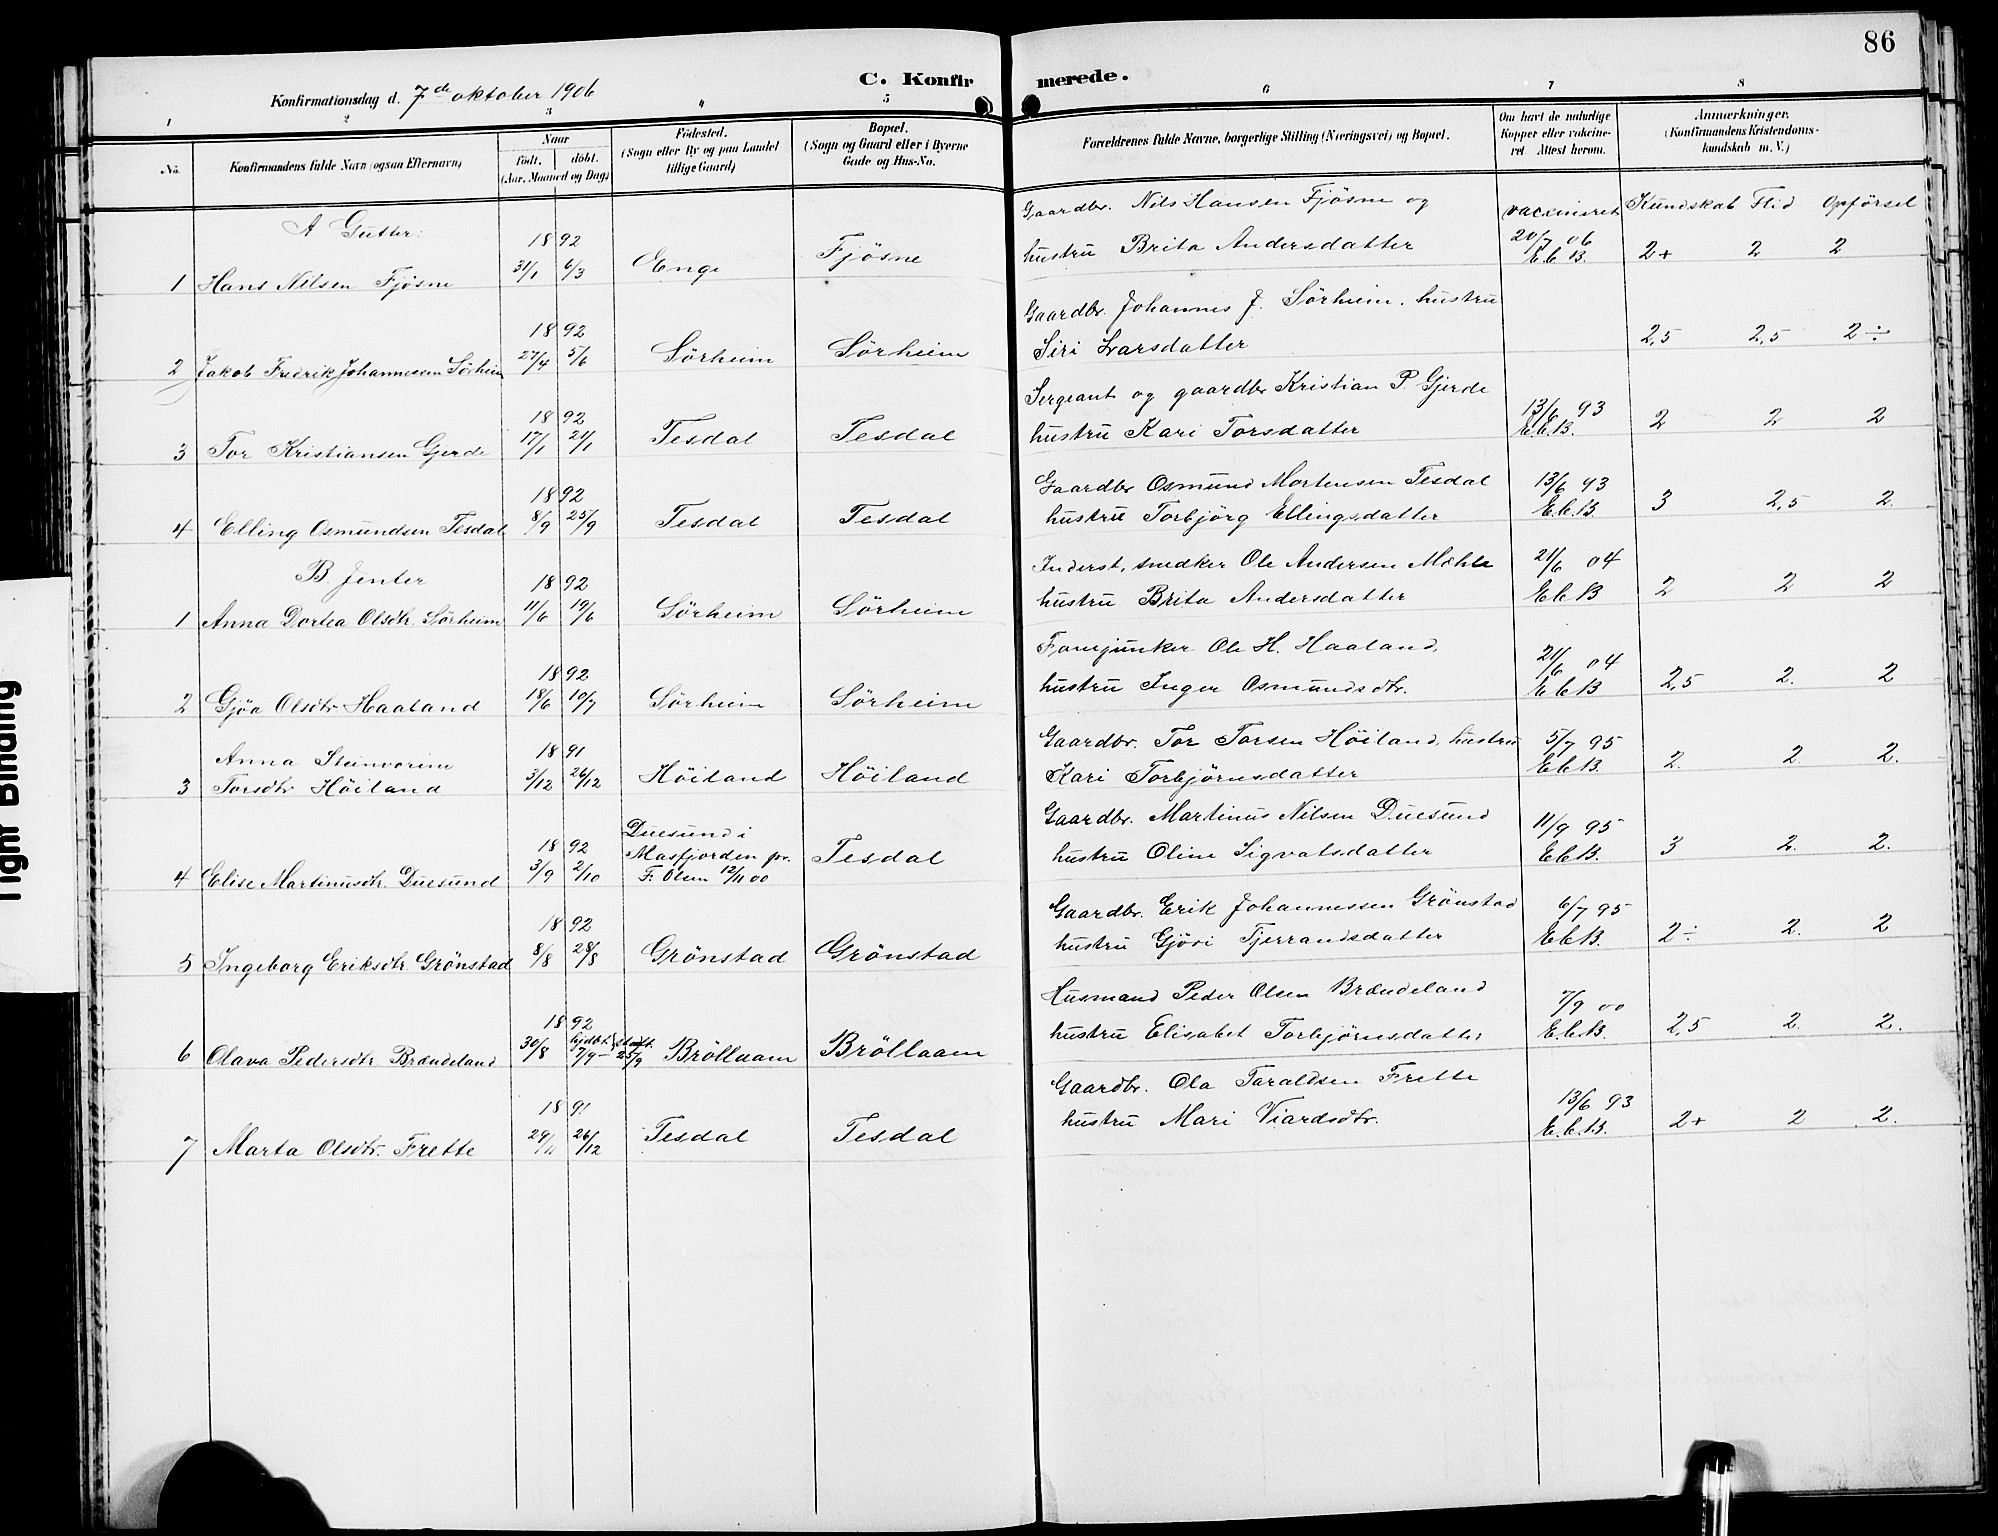 86
C. Konfirmerede.
Konfirmationsdag d. 7de oktober 1906
1 2 3 4 5 6 7 8
No. Konfirmandens fulde Navn (ogsaa Efternavn)
Naar
født. døbt.
(Aar, Maaned og Dag)
Fødested.
(Sogn eller By og paa Landet
tillige Gaard)
Bopæl.
(Sogn og Gaard eller i Byerne
Gade og Hus-No.
Forældrenes fulde Navne, borgerlige Stilling (Næringsvei) og Bopæl.
Om havt de naturlige
Kopper eller vakcine-
ret Attest herom.
Anmærkninger.
(Konfirmandens Kristendoms-
kundskab m. V.)
Kundskab Flid Opførsel
A Gutter:
1 Hans Nilsen Fjösne 1892 31/1 6/3 Enge Fjösne
Gaardbr. Nils Hansen Fjösne og vaccineret
hustru Brita Andersdatter 20/7 06 E.C.B. 2+ 2 2
2 Jakob Fredrik Johannessen Sörheim 1892 27/4 5/6 Sörheim Sörheim
Gaardbr. Johannes J. Sörheim, hustru
Siri Larsdatter 2,5 2,5 2÷
3 Tor Kristiansen Gjerde 1892 17/1 21/1 Tesdal Tesdal
Sergeant og gaardbr Kristian P. Gjerde
hustru Kari Torsdatter 13/6 93 E.C.B. 2 2 2
4 Elling Osmundsen Tesdal 1892 8/9 25/9 Tesdal Tesdal
Gaardbr Osmund Mortensen Tesdal
hustru Torbjörg Ellingsdatter 13/6 93 E.C.B. 3 2,5 2.
B. Jenter
1 Anna Dortea Olsdtr. Sörheim 1892 11/6 19/6 Sörheim Sörheim
Inderst, snedker Ole Andersen Mæhle
hustru Brita Andersdatter 21/6 04 E.C.B 2 2 2
2 Gjöa Olsdtr. Haaland 1892 18/6 10/7 Sörheim Sörheim
Fanejunker Ole H. Haaland,
hustru Inger Osmundsdtr. 21/6 04 E.C.B 2,5 2. 2
3 Anna Steinvorine
Torsdtr Höiland 1891 3/12 26/12 Höiland Höiland
Gaardbr. Tor Torsen Höiland, hustru
Kari Torbjörnsdatter 5/7 95 E.C.B. 2. 2 2.
4 Elise Martinusdtr. Duesund 1892 3/9 2/10 Duesund i
Masfjorden pr.
F. Olsen 12/11 00 Tesdal
Gaardbr. Martinus Nilsen Duesund
hustru Oline Sigvatsdatter 11/9 95 E.C.B. 3 2. 2.
5 Ingeborg Eriksdtr. Grönstad 1892 8/8 28/8 Grönstad Grönstad
Gaardbr. Erik Johannessen Grönstad
hustru Gjöri Tjerrandsdatter 6/7 95 E.C.B. 2÷ 2. 2
6 Olava Pedersdtr Brændeland 1892 30/8 hjdbt. 7/9 - stadf. 25/9 Bröllaam Bröllaam
Husmand Peder Olsen Brændeland
hustru Elisabet Torbjörnsdatter 7/9 00 E.C.B. 2,5 2. 2.
7 Marta Olsdtr. Frette 1891 29/11 26/12 Tesdal Tesdal
Gaardbr. Ola Taraldsen Frette
hustru Mari Viardsdtr. 13/6 93 E.C.B. 2+ 2 2.
Tight Binding